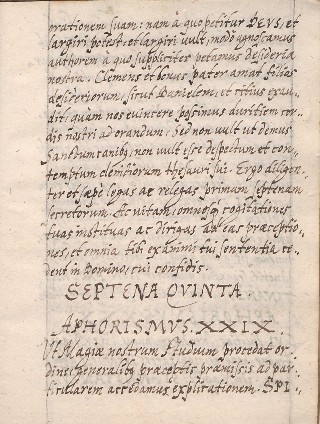 orationem suam: nam à quo petitur DEVS, et
largiri potest, et largiri vult, modo agnoscamus
authorem à quo suppliciter petamus desideria
nostra. Clemens et bonus pater amat filios
desideriorum, sicut Danielem, et citius exau-
dit; quam nos evincere possimus duritiem cor-
dis nostri ad orandum. Sed non vult ut demus
Sanctum canibus, non vult esse despectum et con-
temptum clenodiorum thesauri sui. Ergo diligen-
ter et sæpe legas ac relegas primam septenam
secretorum. Ac vitam, omnesq; cogitationes
tuas instituas ac dirigas ad eas præceptio-
nes, et omnia tibi ex animi tui sententia ce-
dent in Domino, cui confidis.
SEPTENA QVINTA.
APHORISMVS. XXIX.
Ut Magiæ nostrum studium procedat or-
dine, generalibus præceptis præmissis ad par-
ticularem accedamus explicationem. SPI-